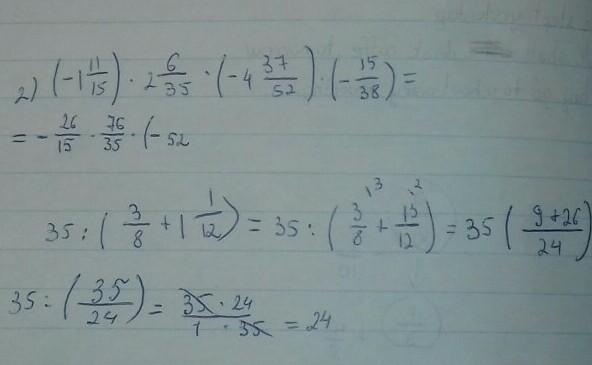 2) (-1 11/15) · 2 6/35 · (-4 37/52) · (-15/38) =
= - 26/15 · 76/35 · (- 52
35 : (3/8 + 1 1/12) = 35 : (3/8 \3 + 13/12 \2) = 35 (9+26/24)
35 : (35/24) = 35 · 24/1 · 35 = 24